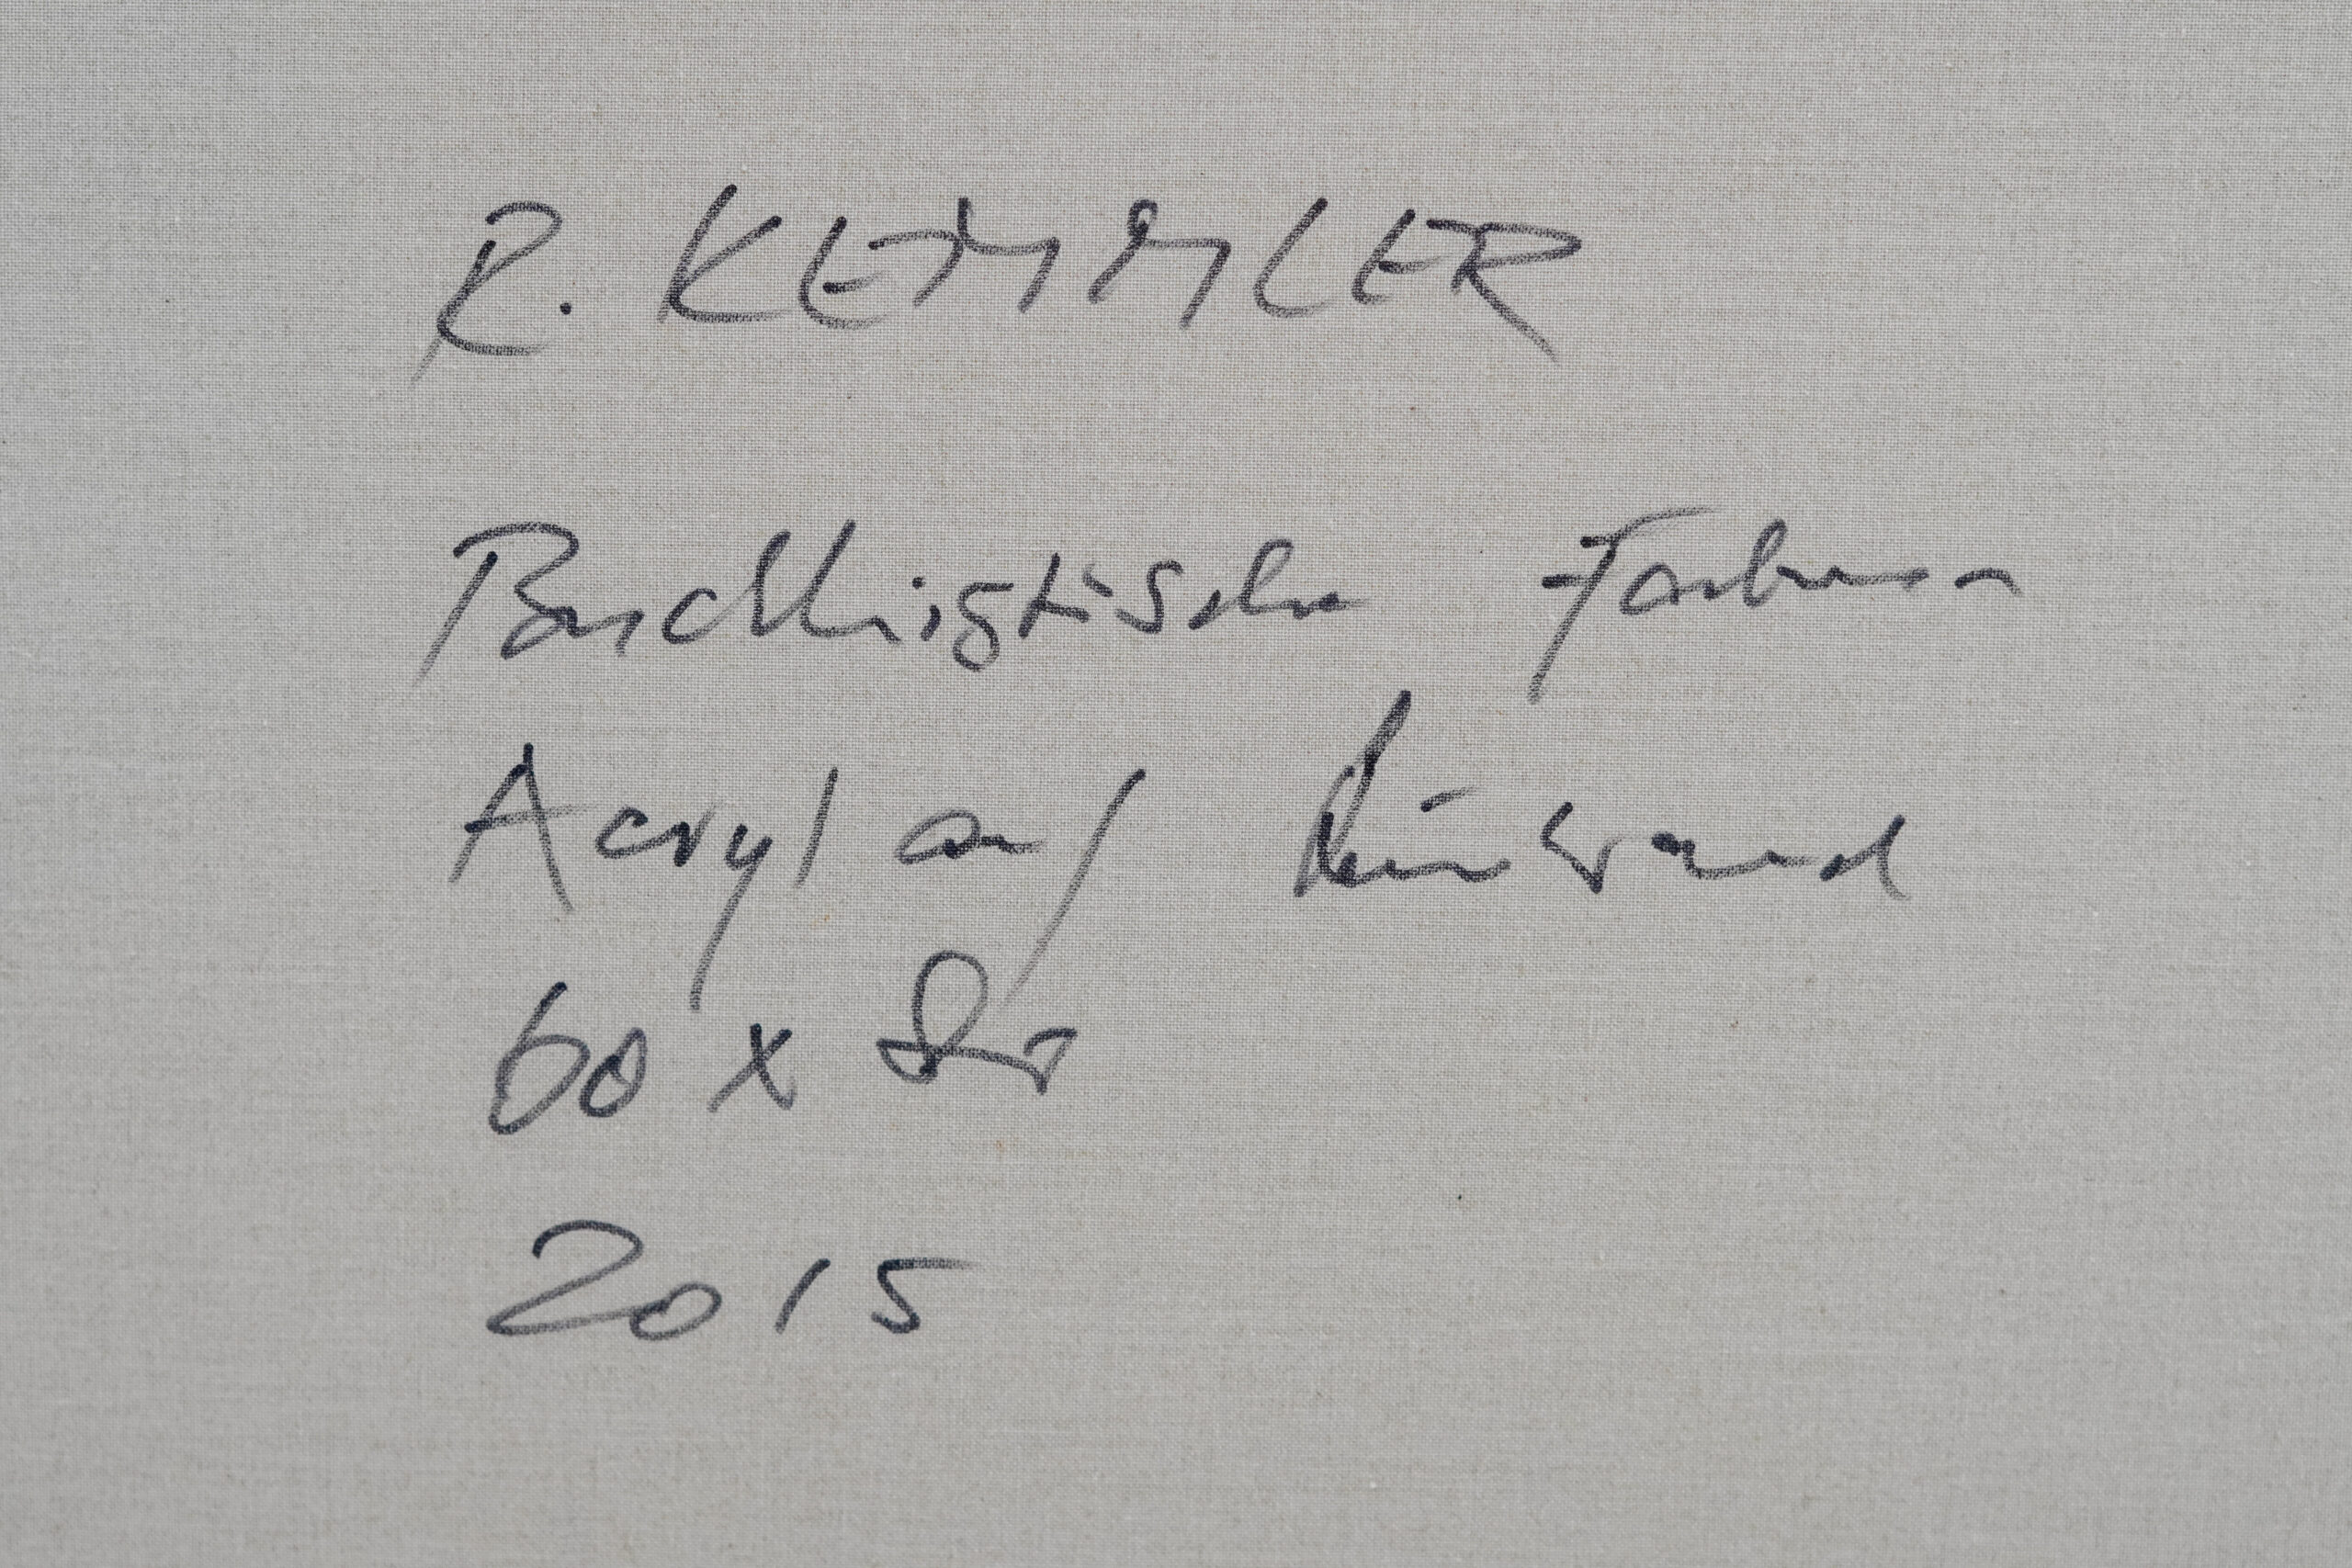 R. KEMMLER
Buddhistische Farben
Acryl auf Leinwand
60 x 80
2015